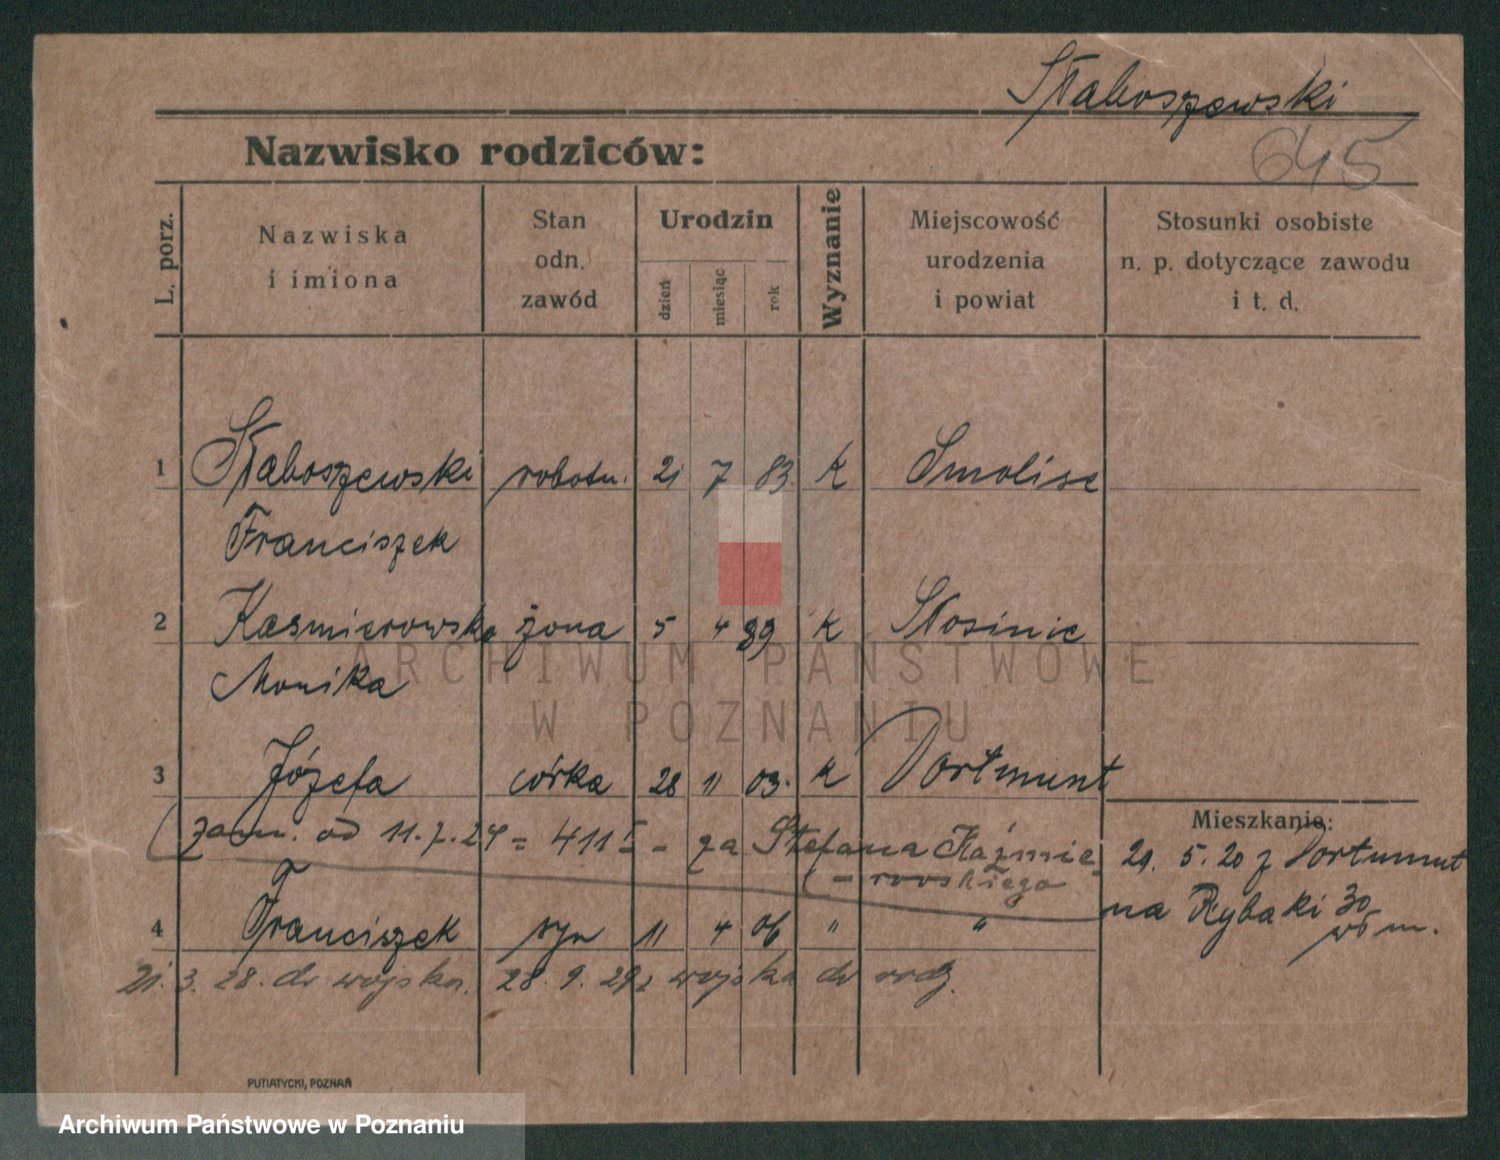 Staboszewski
645
Nazwisko rodziców:
L. porz.
Nazwiska
i imiona
Stan
odn.
zawód
Urodzin
dzień
miesiąc
rok
Wyznanie
Miejscowość
urodzenia
i powiat
Stosunki osobiste
n. p. dotyczące zawodu
i t. d.
1 Staboszewski robotn. 21 7 83 k Smolice
Franciszek
2 Kasmierowska żona 5 4 89 k Słosinie
Monika
ARCHIWUM PAŃSTWOWE
W POZNANIU
3 Józefa córka 28 11 03. k Dortmunt
Mieszkanie:
zam. od 11.7.24 = 411 - za Stefana Kaźmie-
rowskiego
29. 5. 20 z Dortmunt
na Rybaki 30
m.
4 Franciszek syn 11 4 06 " "
21. 3. 28. do wojska. 28. 9. 29 z wojska do rodz.
PUTIATYCKI, POZNAŃ
Archiwum Państwowe w Poznaniu